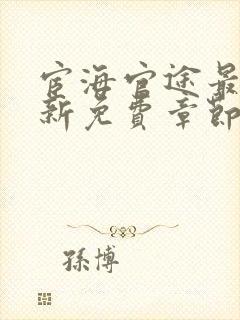 宦海官途最
新免費章節
孫博